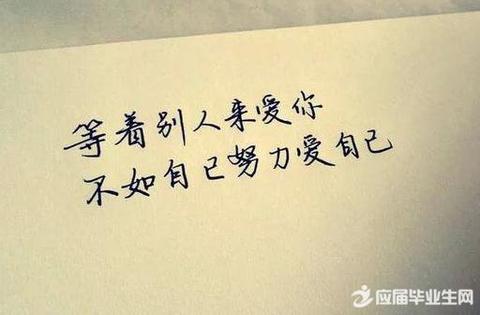 等着别人来爱你
不如自己努力爱自己
应届毕业生网